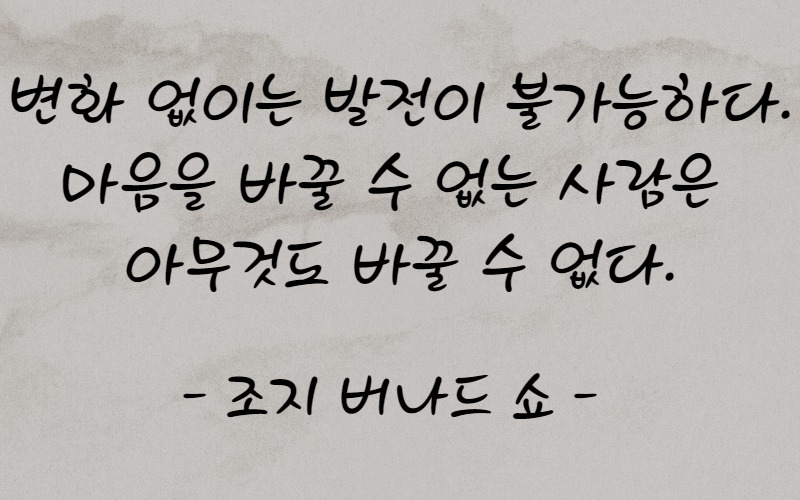 변화 없이는 발전이 불가능하다.
마음을 바꿀 수 없는 사람은
아무것도 바꿀 수 없다.
- 조지 버나드 쇼 -